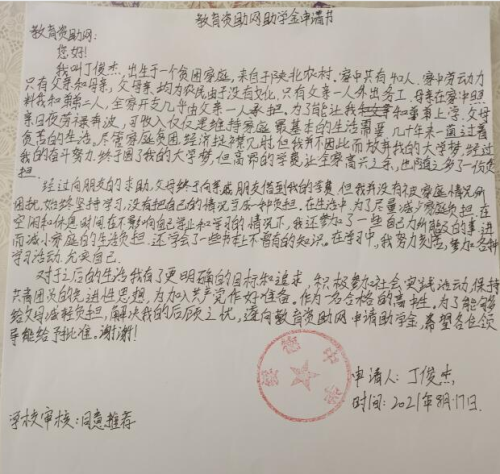 教育资助网助学金申请书
教育资助网:
您好!
我叫丁俊杰,出生于一个贫困家庭,来自于陕北农村,家中共有四口人,家中劳动力
只有父亲和母亲,父母亲均为农民由于没有文化,只有父亲一人外出务工,母亲在家中照
料我和弟弟二人,全家开支几乎由父亲一人承担。为了能让我和弟弟上学,父母
亲日夜劳碌奔波,可收入仅仅是维持家庭最基本的生活需要,几十年来一直过着
贫苦的生活。尽管家庭贫困,经济拮据几时,但我并不因此而放弃我的大学梦,经过
我的奋斗努力,终于圆了我的大学梦,但高昂的学费让全家高兴之余,也随之多了一份负
担。
经过向朋友的求助,父母终于向亲戚朋友借到我的学费,但我并没有被家庭情况所
困扰,始终坚持学习,没有把自己的情况当成一种负担。在生活中,为了尽量减少家庭负担,在
空闲和休息时间在不影响自己学业和学习的情况下,我还参加了一些自己力所能及的事,进
而减小家庭的生活负担,还学会了一些书本上不曾有的知识。在学习中,我努力刻苦,参加各种
学习活动,充实自己。
对于之后的生活我有了更明确的目标和追求,积极参加社会实践活动,保持
共青团员的先进性思想,为加入共产党作好准备。作为一名合格的高中生,为了能够
给父母减轻负担,解决我的后顾之忧,遂向教育资助网申请助学金,希望各位领
导能给予批准。谢谢!
申请人:丁俊杰
时间:2021年8月17日
学校审核:同意推荐